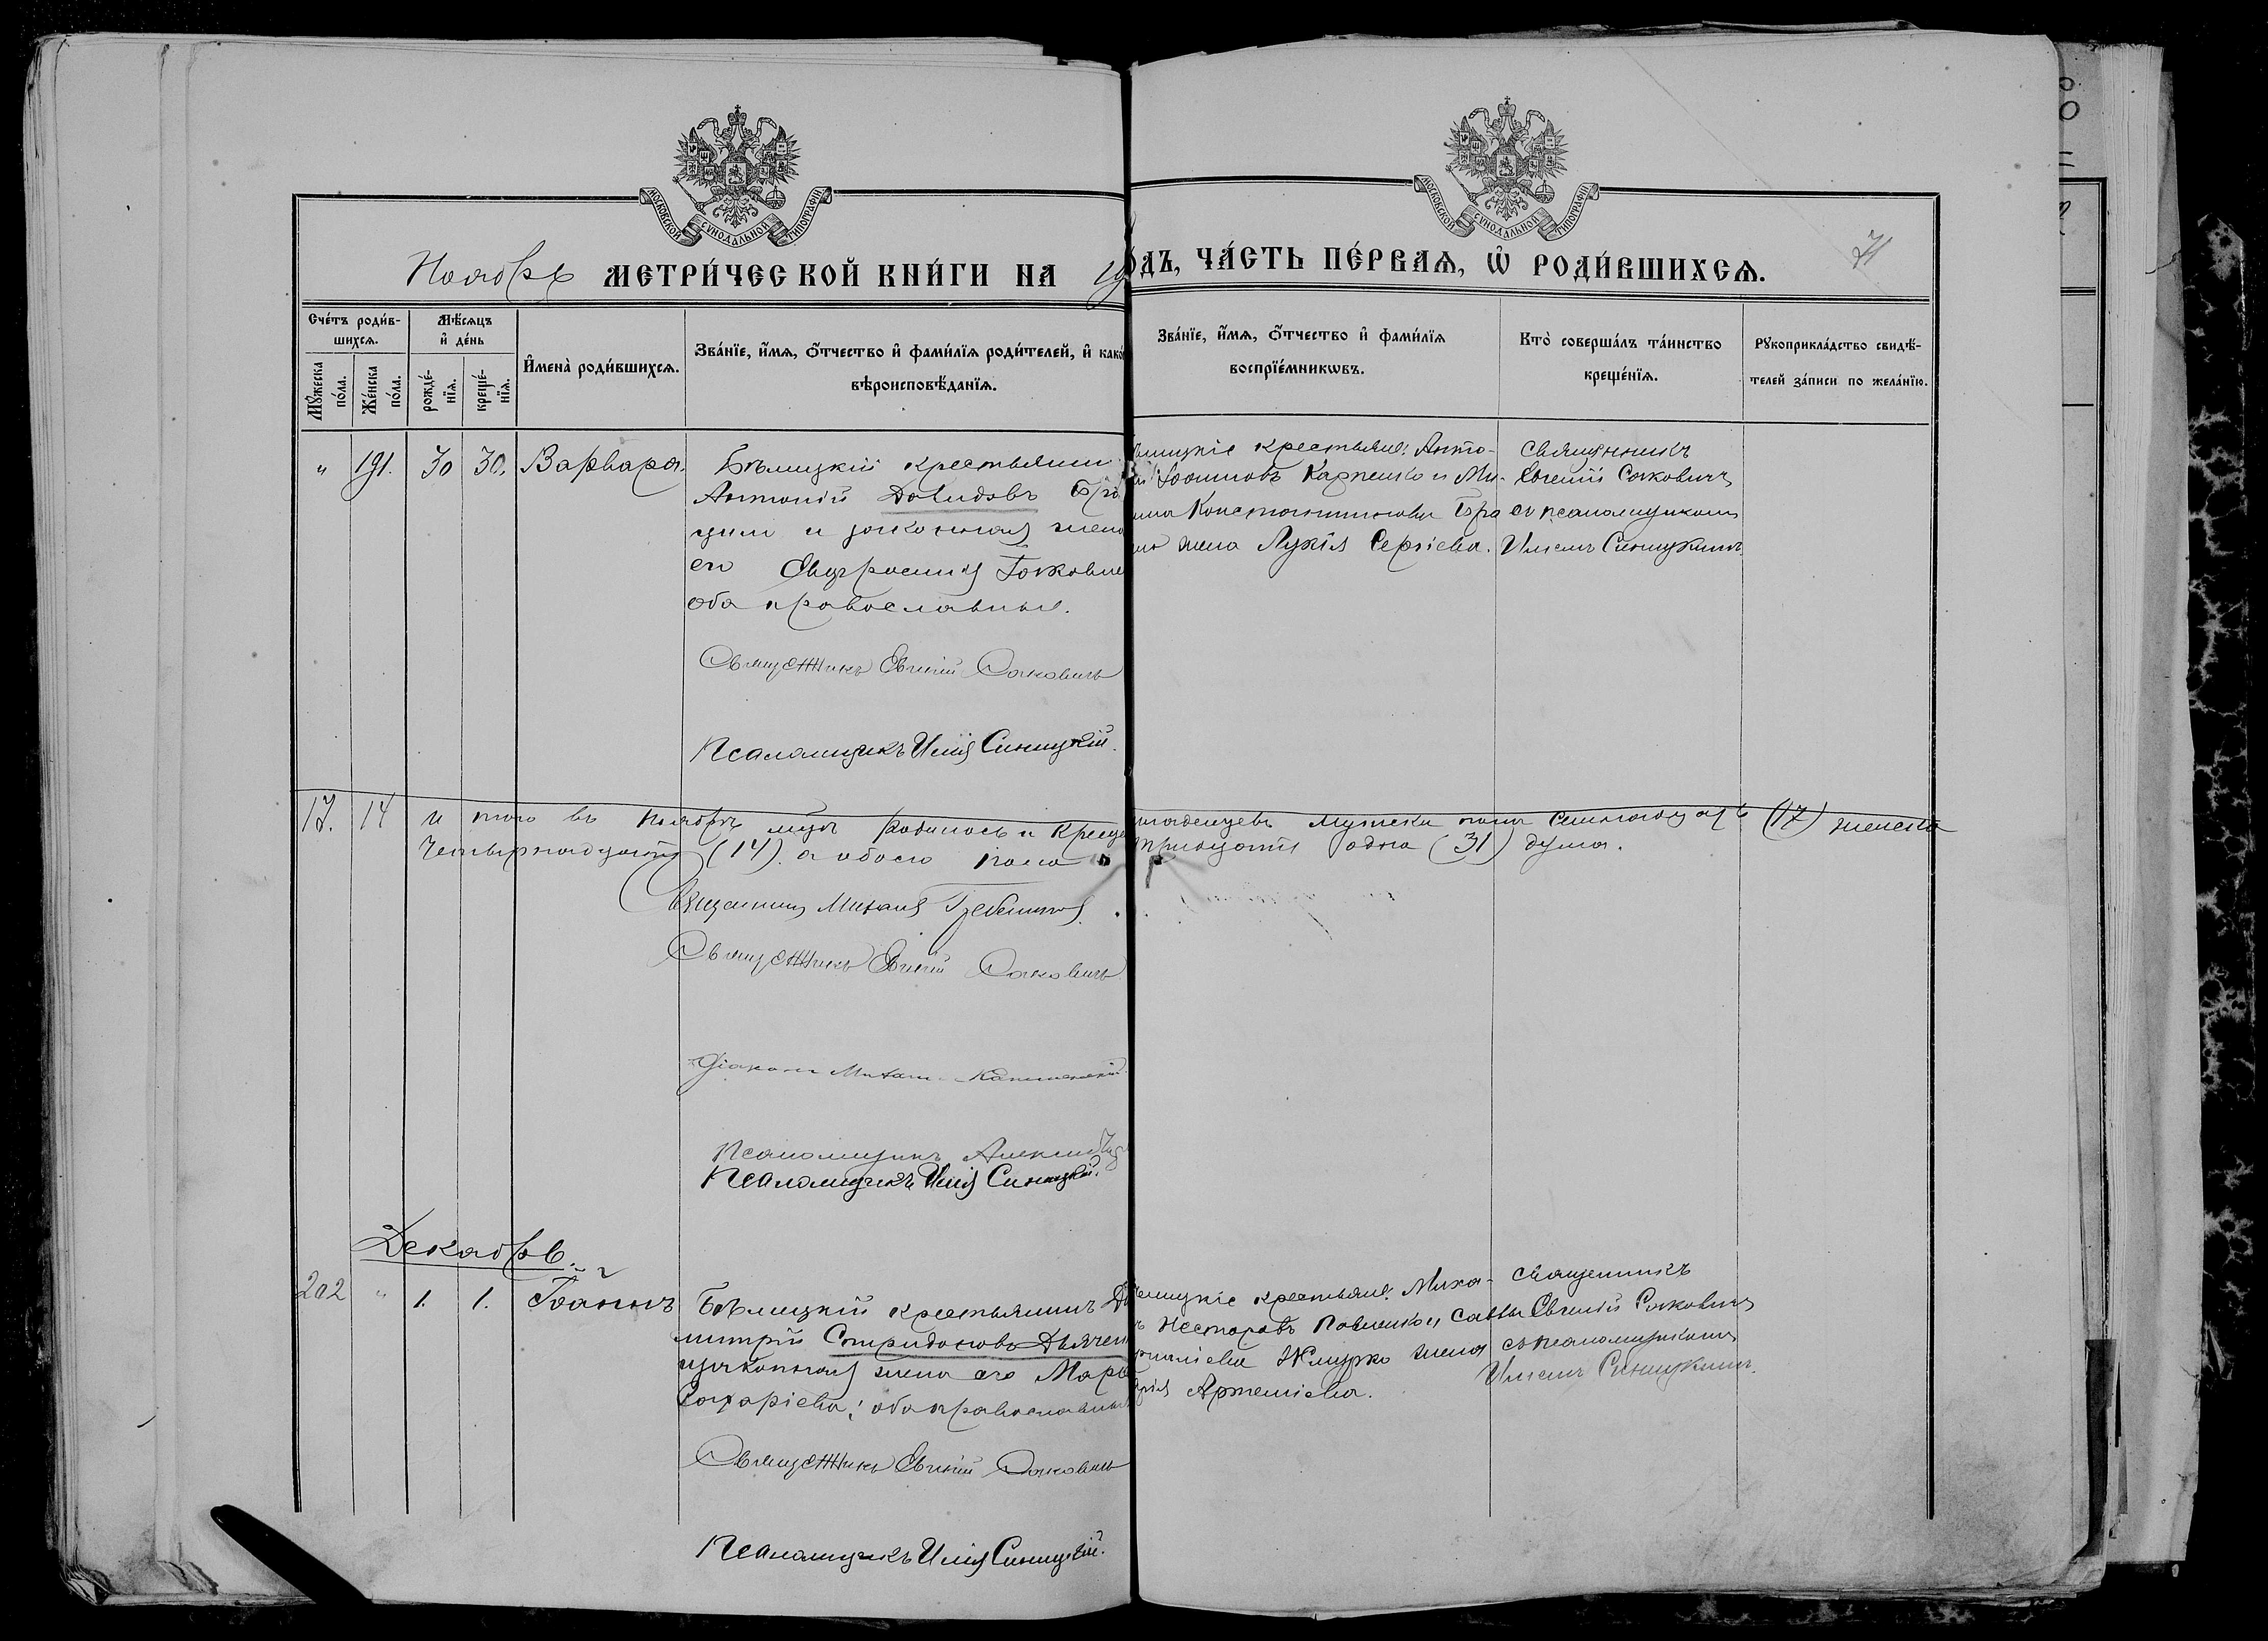 МОСКОВСКОЙ СѴНОДАЛЬНОЙ ТИПОГРАФІИ
МОСКОВСКОЙ СѴНОДАЛЬНОЙ ТИПОГРАФІИ
Ноябрь МЕТРИ́ЧЕСКОЙ КНИ́ГИ НА 19
ДЪ, ЧА́СТЬ ПЕ́РВАЯ, Ѡ РОДИ́ВШИХСЯ.
Сче́тъ роди́в-
шихся.
Мꙋ́жеска по́ла.
Же́нска по́ла.
Мѣ́сяцъ
и҆ де́нь
рожде́-
нїя.
креще́-
нїя.
И҆мена̀ роди́вшихся.
Зва́нїе, и҆́мя, ѻ҆́тчество и҆ фами́лїя роди́телей, и҆ како́
вѣроисповѣ́данїя.
Зва́нїе, и҆́мя, ѻ҆́тчество и҆ фами́лїя
воспрїе́мникѡвъ.
Кто̀ соверша́лъ та́инство
креще́нїя.
Рꙋкоприкла́дство свидѣ́-
телей за́писи по жела́нїю.
" 191. 30 30. Варвара.
Бѣлицкій крестьянин
Антоній Давидовъ Бра
и законная жена
его Евфросинія
оба православные.
Священникъ Евгеній Сакович
Псаломщикъ Илія Синицкій.
крестьяне: Анто-
Карпенко и Ми-
Константинова
жена Лукія Сергіева.
Священникъ
Евгеній Саковичъ
съ псаломщикомъ
Иліею Синицкимъ
17. 14 И того въ Ноябрѣ мцѣ родилось и креще младенцевъ мужеска пола семнадцать (17) женска
четырнадцать (14). а обоего пола тридцать одна (31) душа.
Священникъ Михаилъ
Священникъ Евгеній Саковичъ
Діаконъ Михаилъ
Псаломщикъ Алексій
Псаломщикъ Илія Синицкій.
Декабрь.
202 " 1. 1. Іоаннъ
Бѣлицкій крестьянинъ Ди
митрій Спиридоновъ Дьячен
и законная жена его Мар
Захаріева; оба православны
Священникъ Евгеній Саковичъ
Псаломщикъ Илія Синицкій.
крестьяне: Миха-
Несторовъ Павленко и Саввы
Жмурко жена
Артеміева.
Священникъ
Евгеній Саковичъ
съ псаломщикомъ
Иліею Синицкимъ.